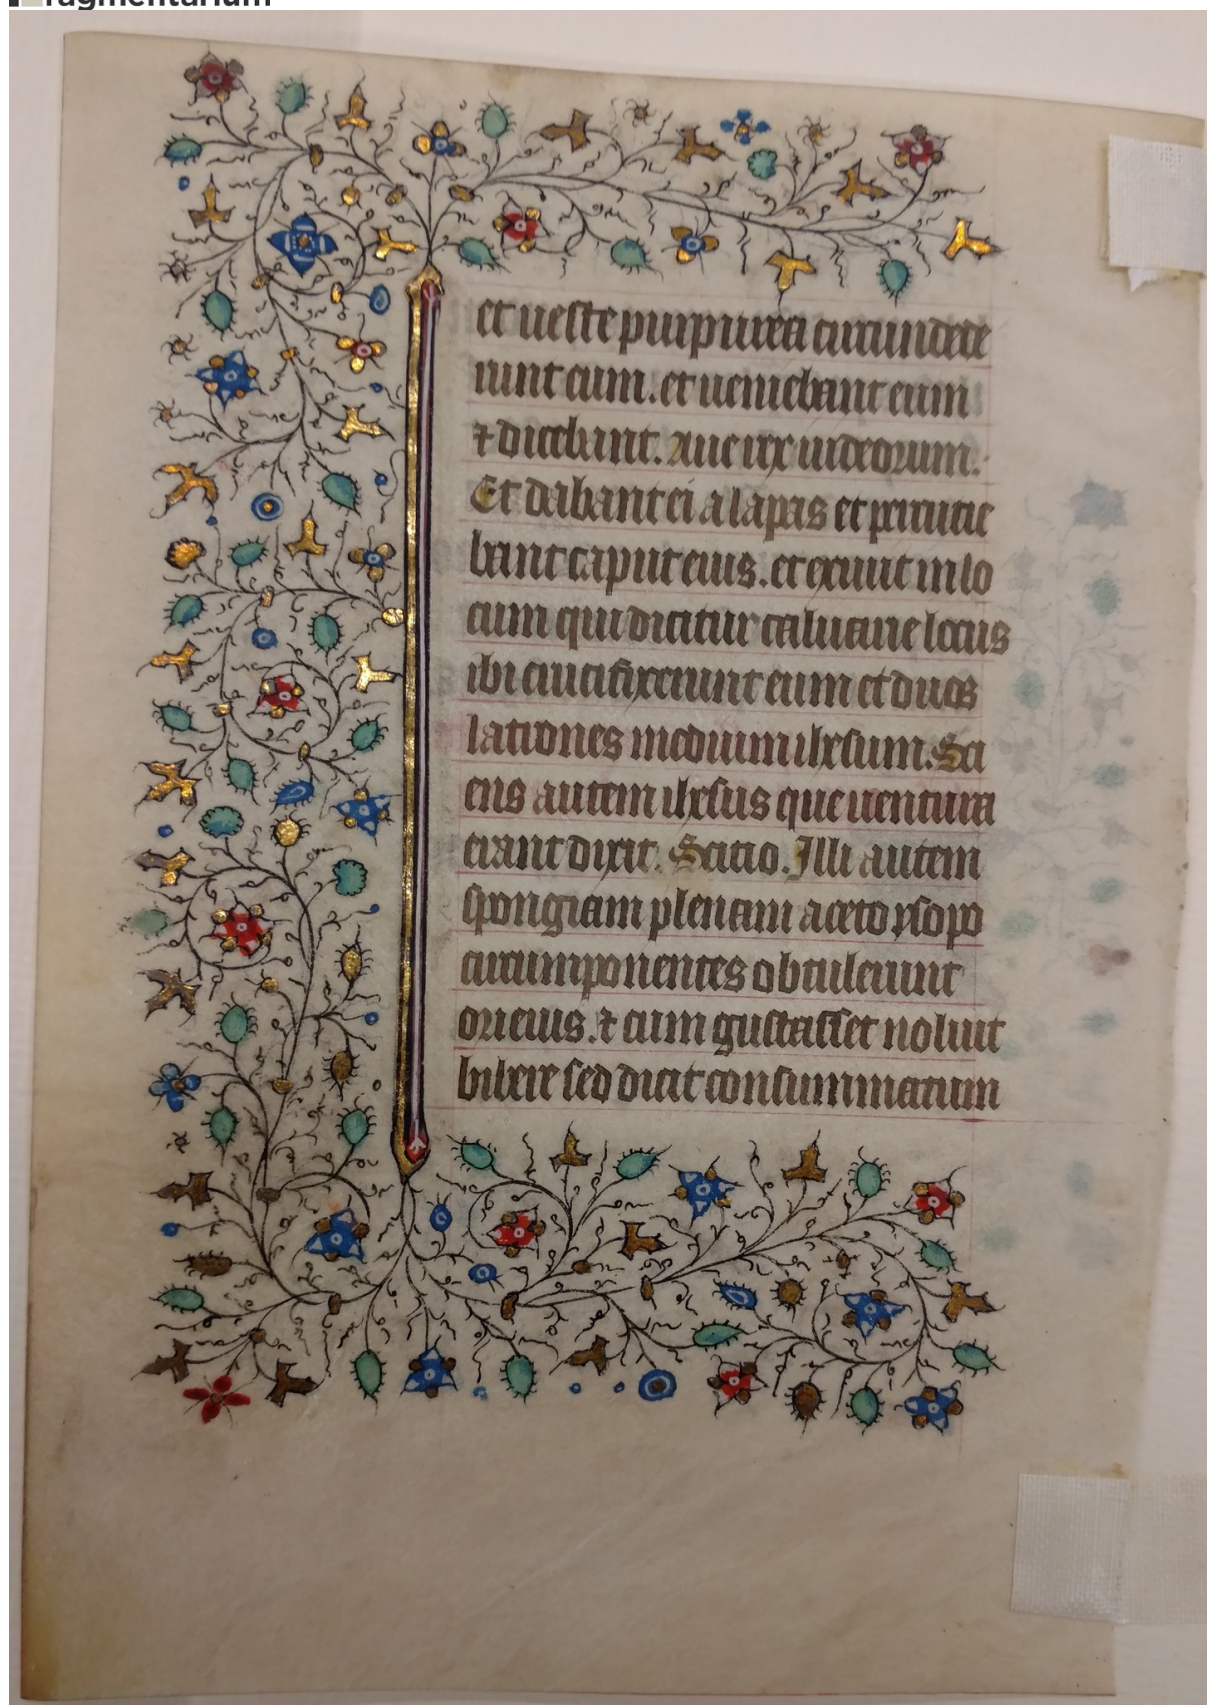 ragmentarium
et ueste purpurea circundede
runt eum. et ueniebant eum
⁊ dicebant. Aue rex iudeorum.
Et dabant ei alapas et percucie
bant caput eius. et exiuit in lo
cum qui dicitur caluarie locus
ibi crucifixerunt eum et duos
latrones medium ihesum. Sci
ens autem ihesus que uentura
erant dixit. Scitio. Illi autem
spongiam plenam aceto ysopo
circumponentes obtulerunt
ori eius. ⁊ cum gustasset noluit
bibere sed dicit consummatum